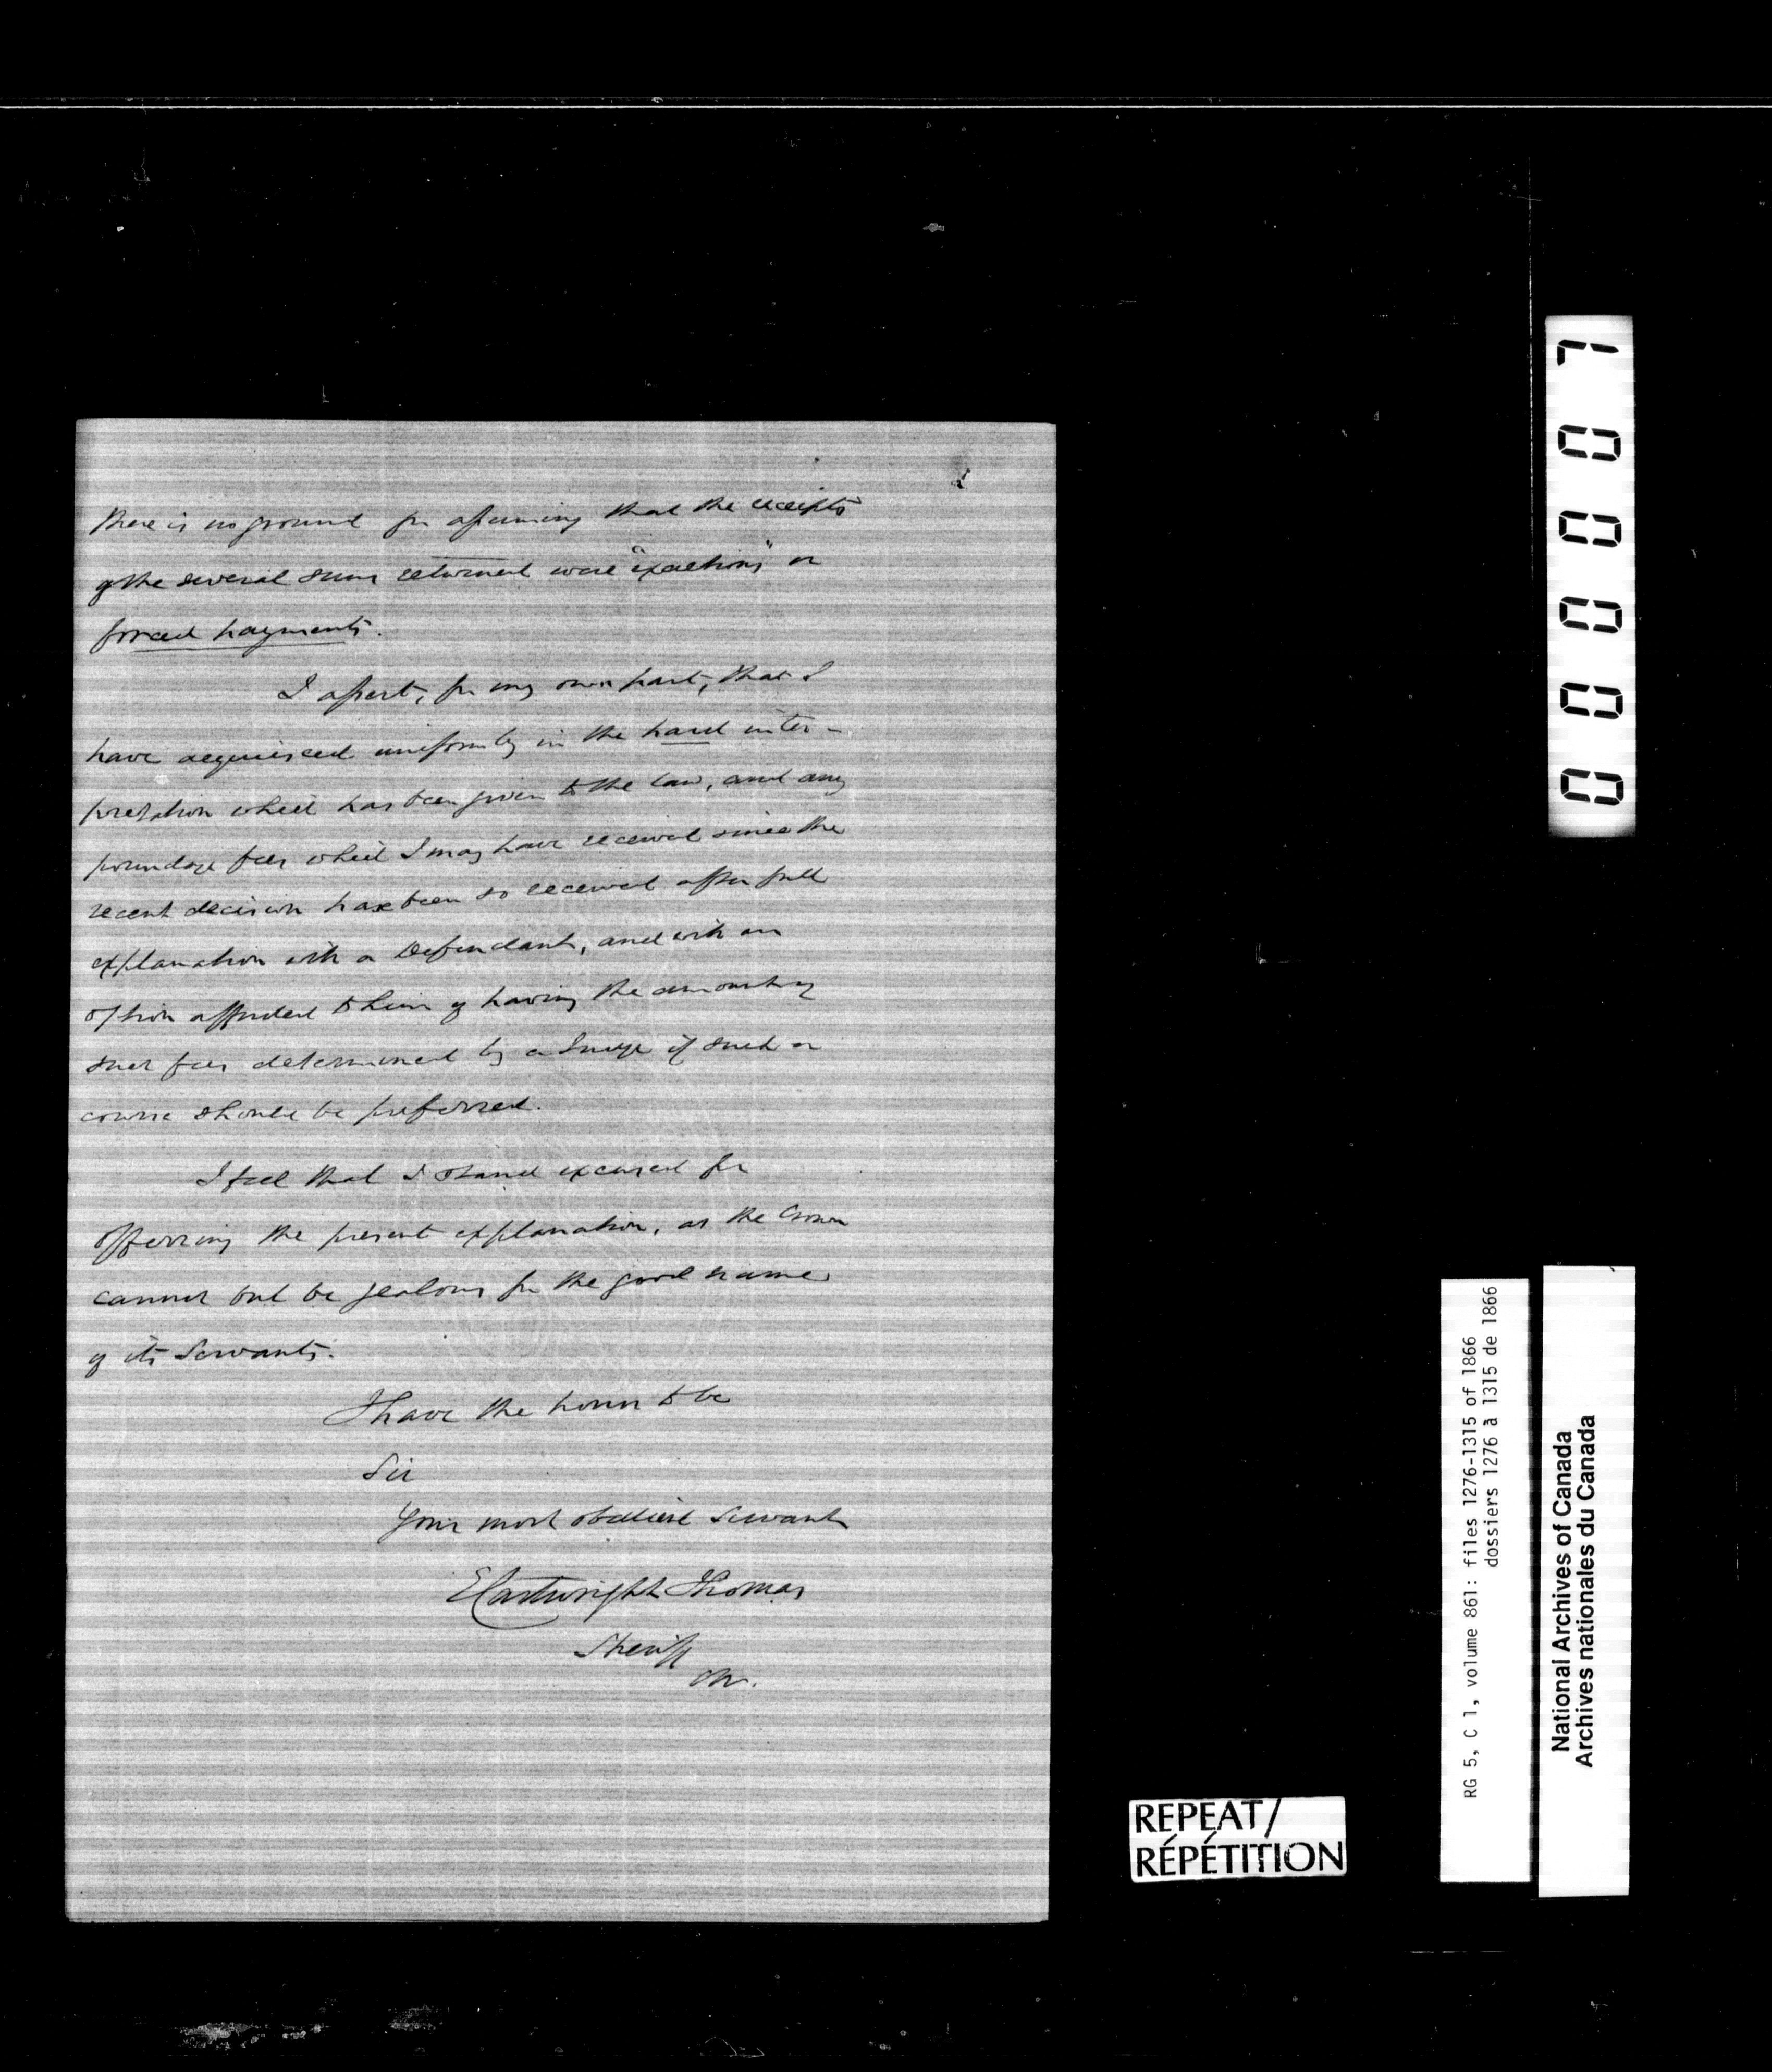 there is no ground for assuming that the receipts
of the several sums returned were "exactions" or
forced payments.
I assert, for my own part, that I
have acquiesced uniformly in the hard inter-
pretation which has been given to the law, and any
poundage fees which I may have received since the
recent decision have been so received after full
explanation with a Defendant, and with an
option afforded to him of having the amount of
such fees determined by a Judge if such a
course should be preferred.
I feel that I stand excused for
offering the present explanation, as the Crown
cannot but be jealous for the good name
of its Servants.
I have the honor to be
Sir
Your most obedient Servant
E Cartwright Thomas
Sheriff
0 0 0 0 0 7
RG 5, C 1, volume 861: files 1276-1315 of 1866
dossiers 1276 à 1315 de 1866
National Archives of Canada
Archives nationales du Canada
REPEAT/
RÉPÉTITION